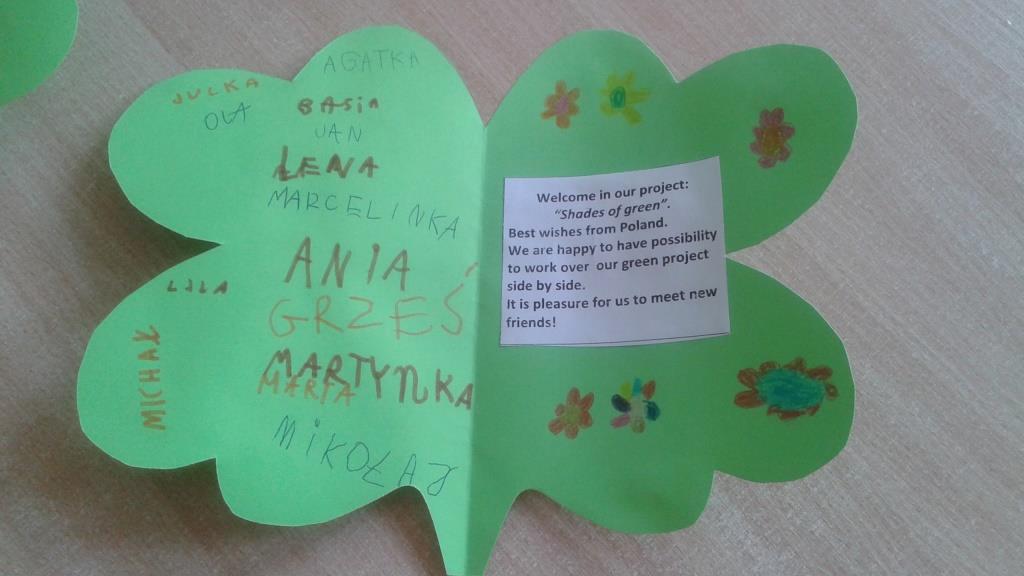 AGATKA
JULKA
BASiA
OLA
JAN
LENA
MARCELINKA
ANIA
LILA
GRZEŚ
MICHAŁ
MARTYNKA
MARTA
MiKOŁAJ
Welcome in our project:
“Shades of green”.
Best wishes from Poland.
We are happy to have possibility
to work over our green project
side by side.
It is pleasure for us to meet new
friends!